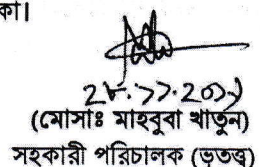 কা।
২৮.১১.২০১১
(মোসাঃ মাহবুবা খাতুন)
সহকারী পরিচালক (ভূতত্ত্ব)